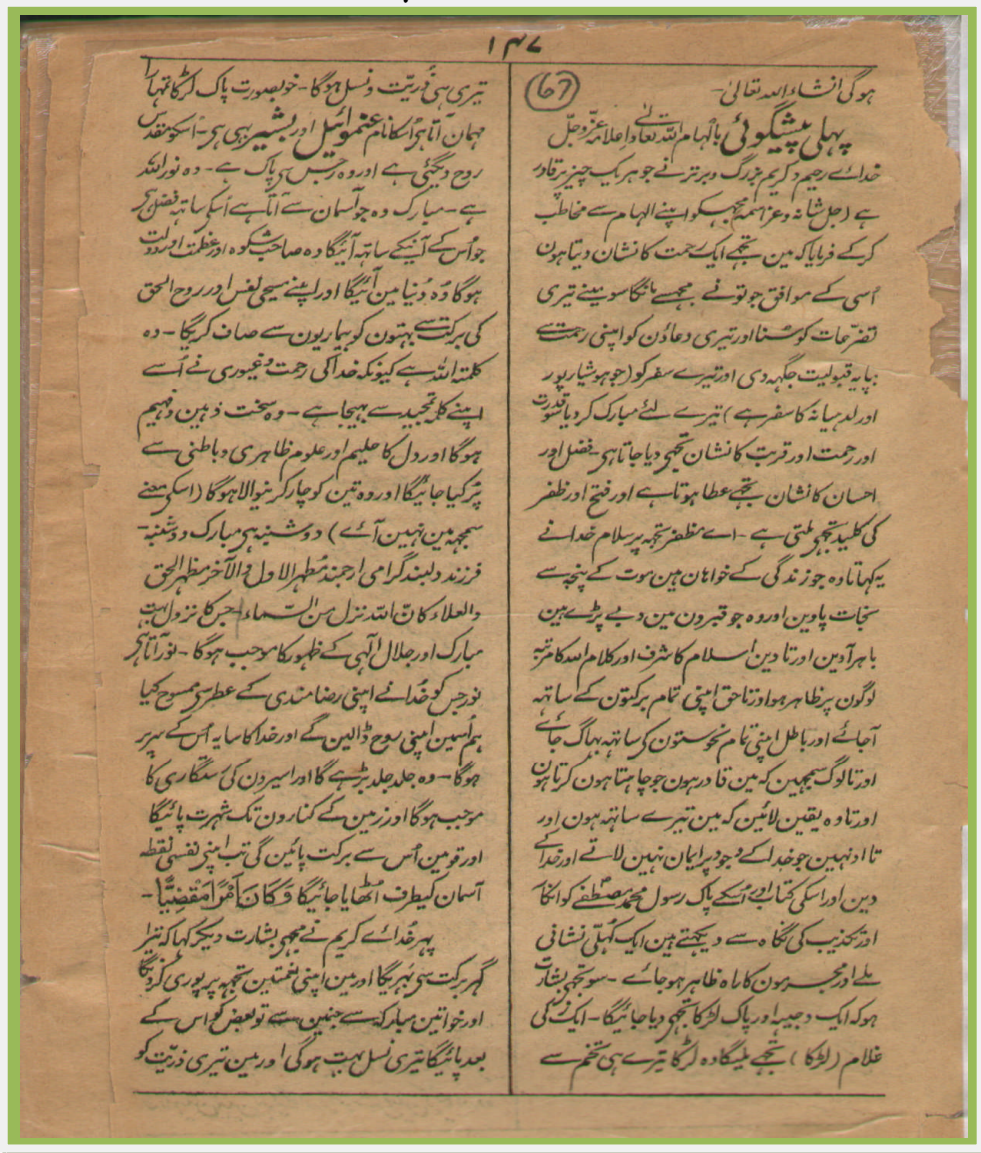 ۱۴۷
67
ہوگی انشاء اللہ تعالیٰ۔
پہلی پیشگوئی بالہام اللہ تعالیٰ واعلامہ عزّوجلّ
خدائے رحیم وکریم بزرگ وبرتر نے جو ہریک چیز پر قادر
ہے (جلّ شانہ وعزّ اسمہ) مجہکو اپنے الہام سے مخاطب
کرکے فرمایا کہ مین تجھے ایک رحمت کا نشان دیتا ہون
اُسی کے موافق جو تونے مجہسے مانگا سو مینے تیری
تضرّعات کو سُنا اور تیری دعاؤن کو اپنی رحمت سے
بپایہ قبولیت جگہہ دی اور تیرے سفر کو (جو ہوشیارپور
اور لدہیانہ کا سفر ہے) تیرے لئے مبارک کردیا سو قدرت
اور رحمت اور قربت کا نشان تجہی دیا جاتا ہی فضل اور
احسان کا نشان تجہے عطا ہوتا ہے اور فتح اور ظفر
کی کلید تجہی ملتی ہے۔ اے مظفر تجہہ پر سلام خدا نے
یہ کہا تا وہ جو زندگی کے خواہان ہین موت کے پنجہ سے
نجات پاوین اور وہ جو قبرون مین دبے پڑے ہین
باہر آوین اور تا دین اسلام کا شرف اور کلام اللہ کا مرتبہ
لوگون پر ظاہر ہو اور تا حق اپنی تمام برکتون کے ساتہہ
آجائے اور باطل اپنی تمام نحوستون کی ساتہہ بہاگ جائے
اور تا لوگ سمجہین کہ مین قادر ہون جو چاہتا ہون کرتا ہون
اور تا وہ یقین لائین کہ مین تیرے ساتہہ ہون اور
تا اونہین جو خدا کے وجود پر ایمان نہین لاتے اور خدا کے
دین اور اسکی کتاب اور اُسکے پاک رسول محمد مصطفےؐ کو انکار
اور تکذیب کی نگاہ سے دیکہتے ہین ایک کُہلی نشانی
ملے اور مجرمون کا راہ ظاہر ہوجائے۔ سو تجہی بشارت
ہو کہ ایک وجیہہ اور پاک لڑکا تجہی دیا جائیگا۔ ایک زکی
غلام (لڑکا) تجہے ملیگا وہ لڑکا تیرے ہی تخم سے
تیری ہی ذُریّت ونسل ہوگا۔ خوبصورت پاک لڑکا تمہارا
مہمان آتا ہی اُسکا نام عنموائیل اور بشیر بہی ہی۔ اُسکو مقدس
روح دیگئی ہے اور وہ رجس سی پاک ہے۔ وہ نور اللہ
ہے۔ مبارک وہ جو آسمان سے آتا ہے اُسکی ساتہہ فضل ہی
جو اُس کے آنیکے ساتہہ آئیگا وہ صاحب شکوہ اور عظمت اور دولت
ہوگا وُہ دُنیا مین آئیگا اور اپنے مسیحی نفس اور روح الحق
کی برکت سے بہتون کو بیماریون سے صاف کریگا۔ وہ
کلمتہ اللہ ہے کیونکہ خدا کی رحمت وغیوری نے اُسے
اپنے کلمہ تمجید سے بہیجا ہے۔ وہ سخت ذہین وفہیم
ہوگا اور دل کا حلیم اور علوم ظاہری وباطنی سے
پُر کیا جائیگا اور وہ تین کو چار کرنیوالا ہوگا (اسکی معنے
سمجہہ مین نہین آئے) دوشنبہ ہی مبارک دوشنبہ۔
فرزند دلبند گرامی ارجمند مُظہر الاول والآخر مظہر الحق
والعلاء کان اللہ نزل من السّماء جس کا نزول بہت
مبارک اور جلال الٰہی کے ظہور کا موجب ہوگا۔ نور آتا ہی
نور جس کو خُدا نے اپنی رضامندی کے عطر سی ممسوح کیا
ہم اُسمین اپنی روح ڈالین گے اور خدا کا سایہ اُس کے سرپر
ہوگا۔ وہ جلد جلد بڑہے گا اور اسیرون کی رستگاری کا
موجب ہوگا اور زمین کے کنارون تک شہرت پائیگا
اور قومین اُس سے برکت پائین گی تب اپنی نفسی نقطہ
آسمان کیطرف اُٹھایا جائیگا وَکَانَ اَمْرًا مَقْضِیًّا۔
پہر خدائے کریم نے مجہی بشارت دیکر کہا کہ تیرا
گہر برکت سی بہریگا اور مین اپنی نعمتین تجہہ پر پوری کرونگا
اور خواتین مبارکہ سے جنمین سے تو بعض کو اس کے
بعد پائیگا تیری نسل بہت ہوگی اور مین تیری ذرّیّت کو